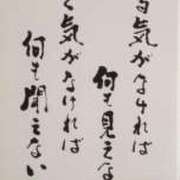 る気がなければ
何も見えな
く気がなければ
何も聞えない